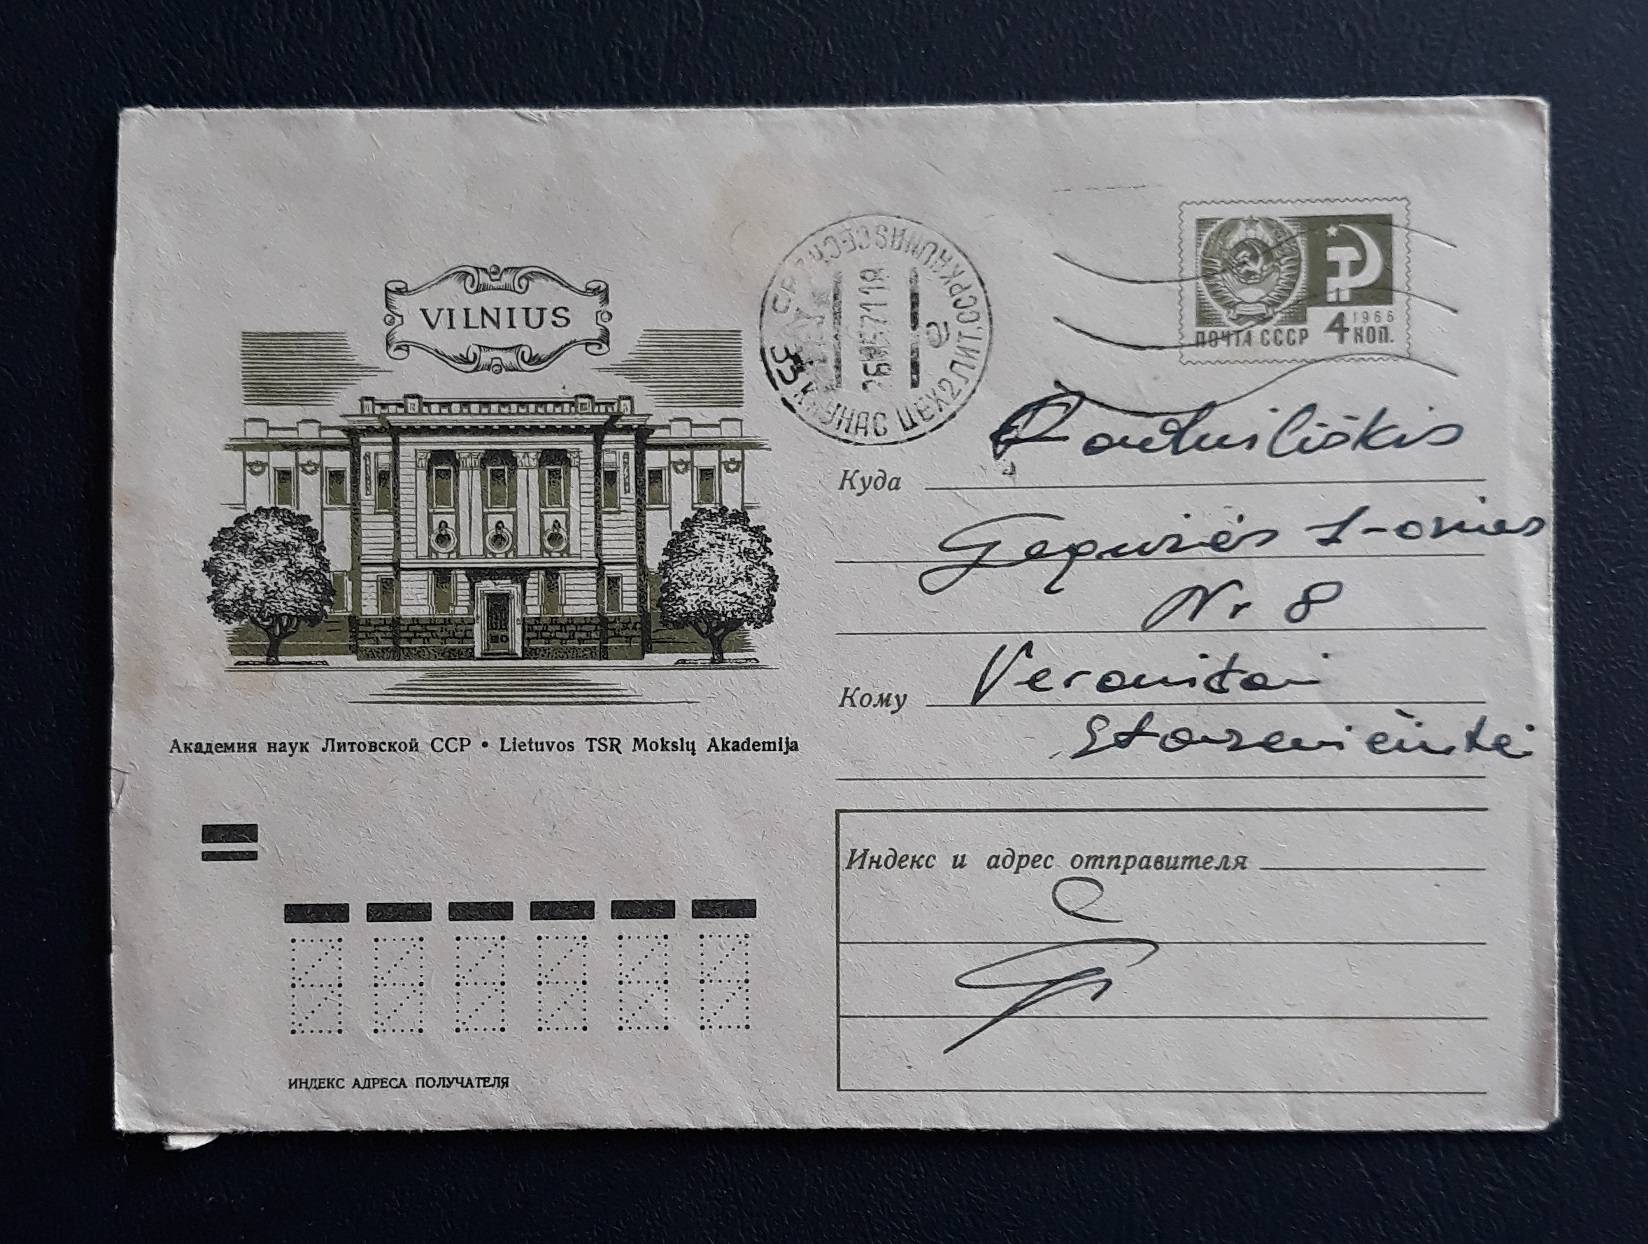 VILNIUS
ПОЧТА СССР 4 КОП.
1966
КАУНАС ЦЕХ2 ЛИТ.ССР KAUNAS
33
Куда Radviliškis
Gegužės 1-osios
Nr 8
Кому Veronikai
Академия наук Литовской ССР • Lietuvos TSR Mokslų Akademija
Индекс и адрес отправителя
ИНДЕКС АДРЕСА ПОЛУЧАТЕЛЯ